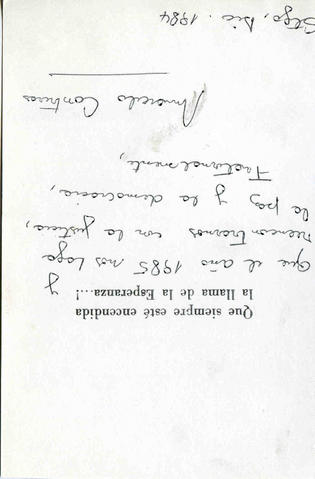 Que siempre esté encendida
la llama de la Esperanza...!
y
que el año 1985 nos haga
reencontrarnos con la justicia,
la paz y la democracia,
Fraternalmente,
Contreras
Stgo, Dic. 1984